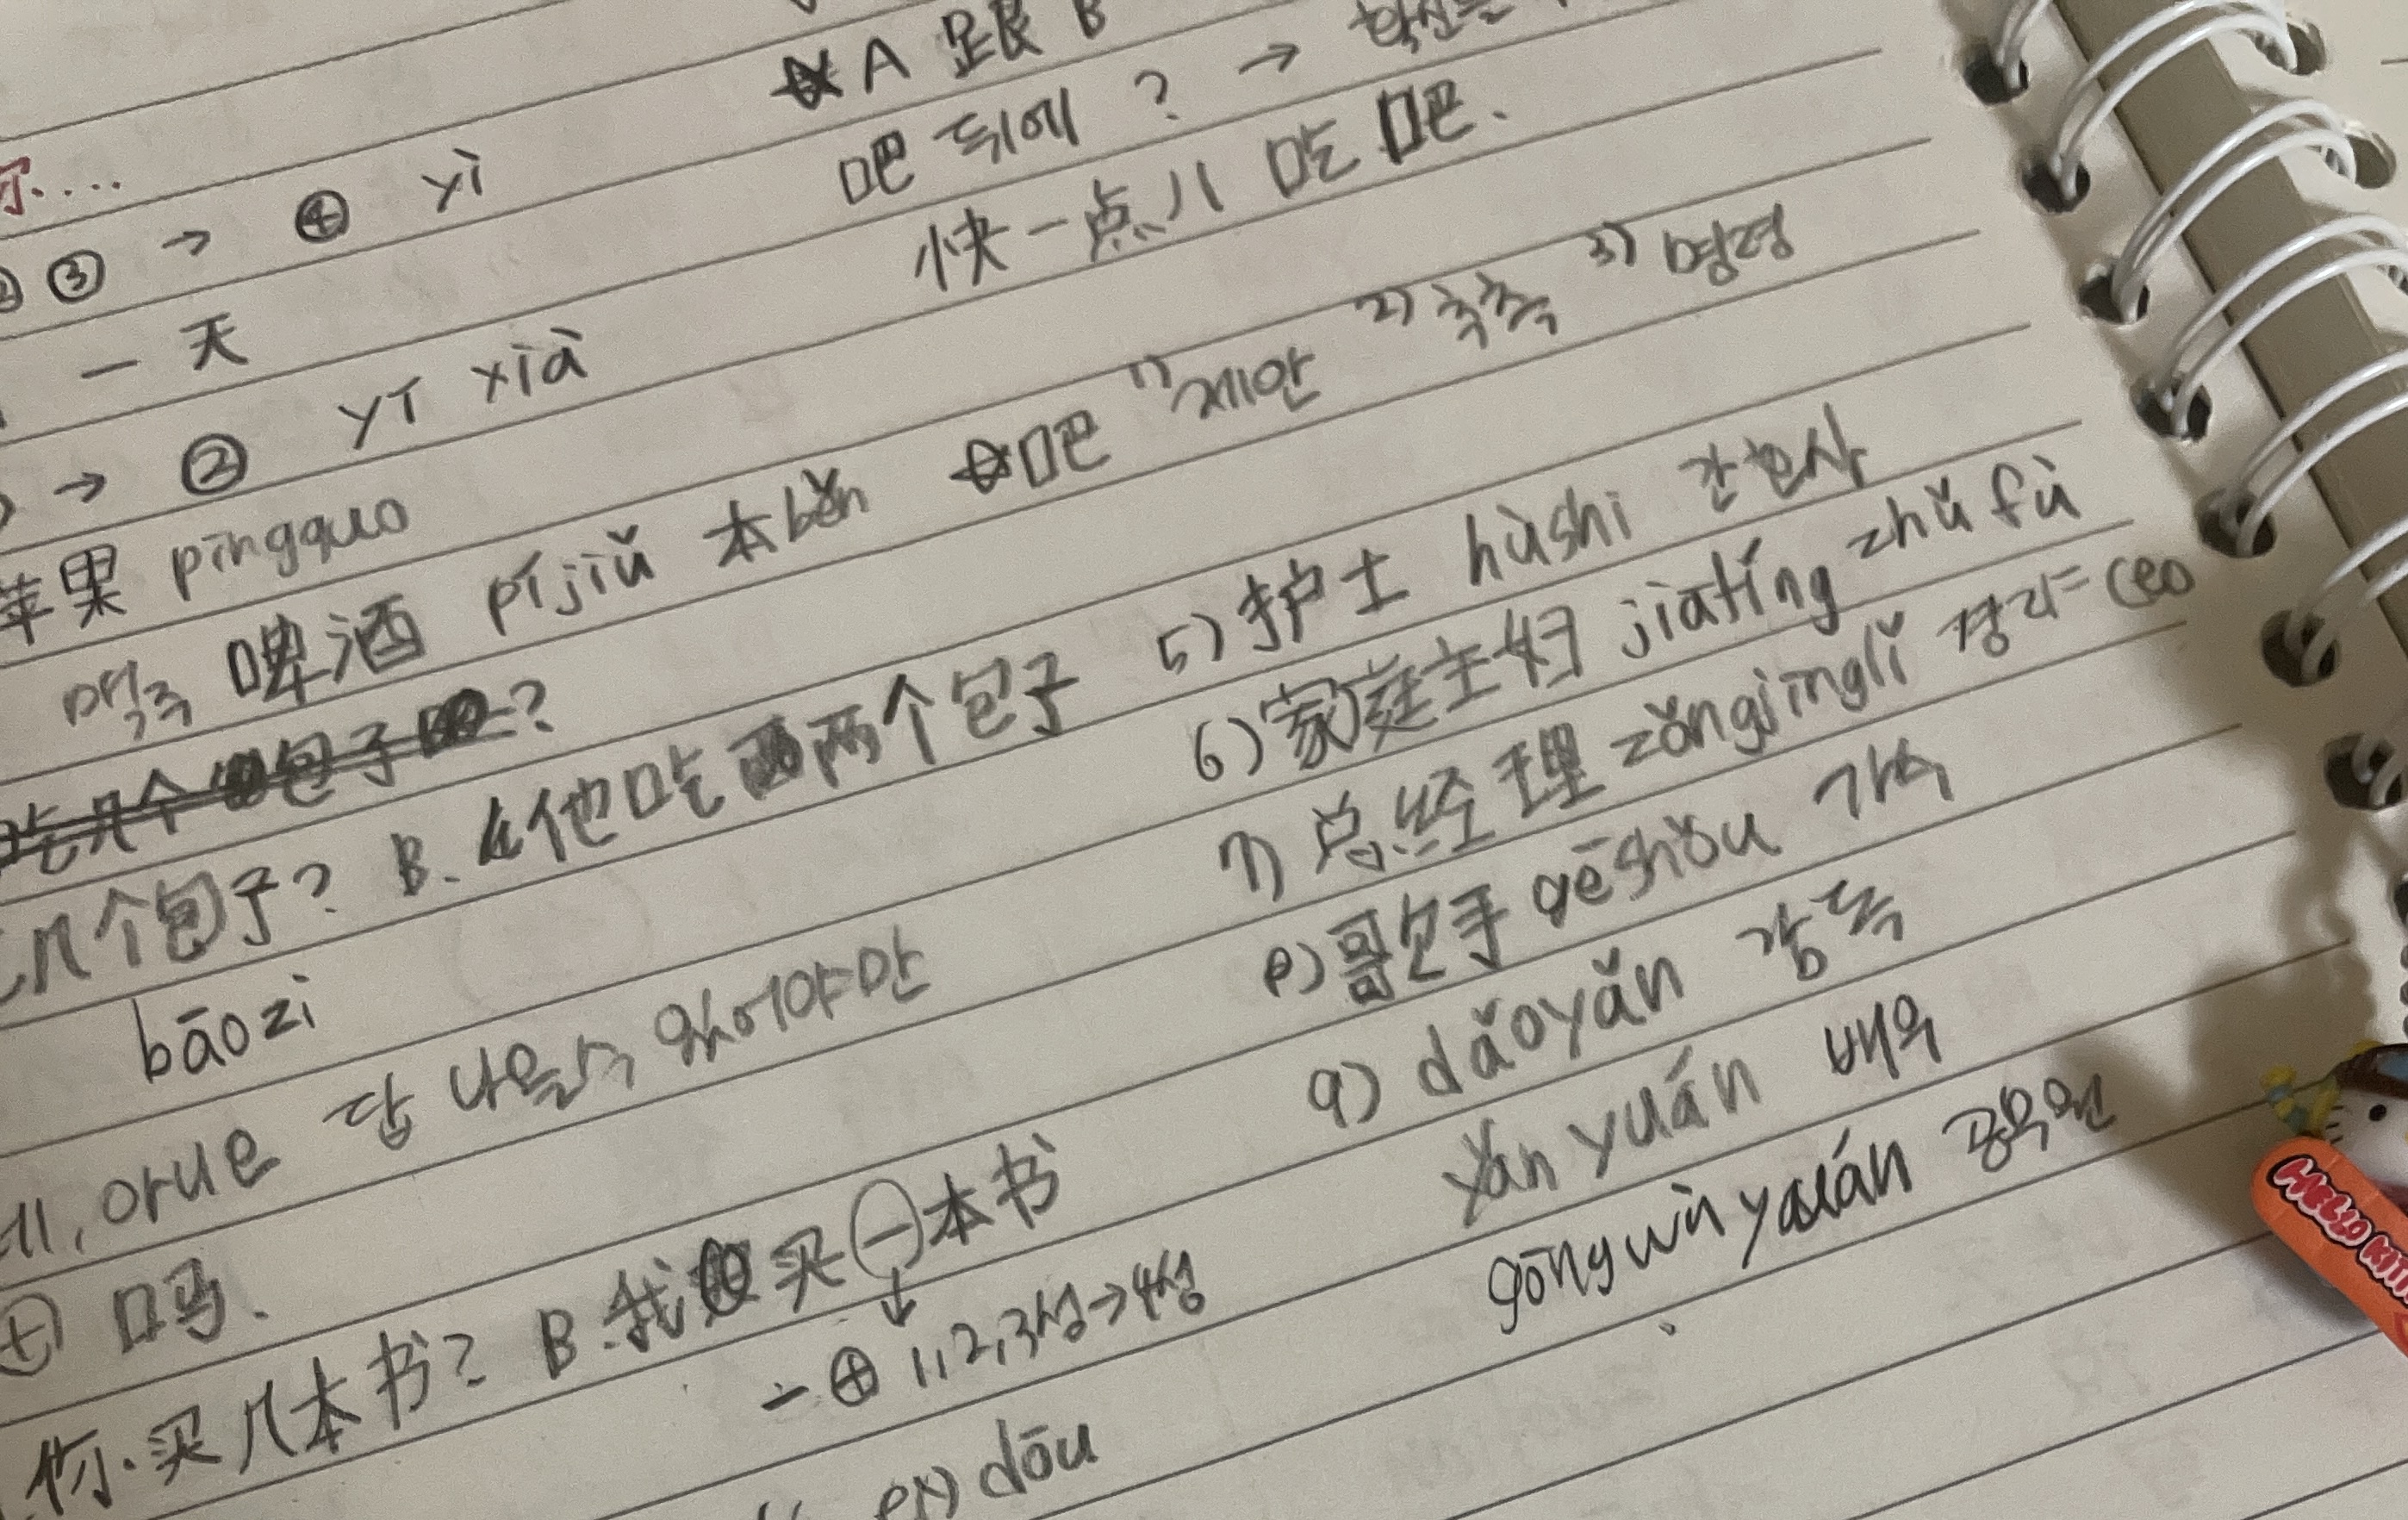 A 跟 B
吧 뒤에 ? →
快一点儿 吃 吧.
③ → ④ yì
一 天
→ ② yí xià
苹果 píngguo
맥주 啤酒 píjiǔ 本 běn
吧 1) 제안 2) 추측 3) 명령
吃几个包子 ?
几个包子? B. 他吃两个包子
bāozi
네, 아니오 답 나올 수 있어야만
⊕ 吗.
你 买几本书? B. 我 买一本书
↓
一 ⊕ 1,2,3성→4성
ex) dōu
5) 护士 hùshi 간호사
6) 家庭主妇 jiātíng zhǔ fù
7) 总经理 zǒngjīnglǐ 경리= CEO
8) 歌手 gēshǒu 가수
9) dǎoyǎn 감독
yǎn yuán 배우
gōng wù yuán 공무원
HELLO KITTY